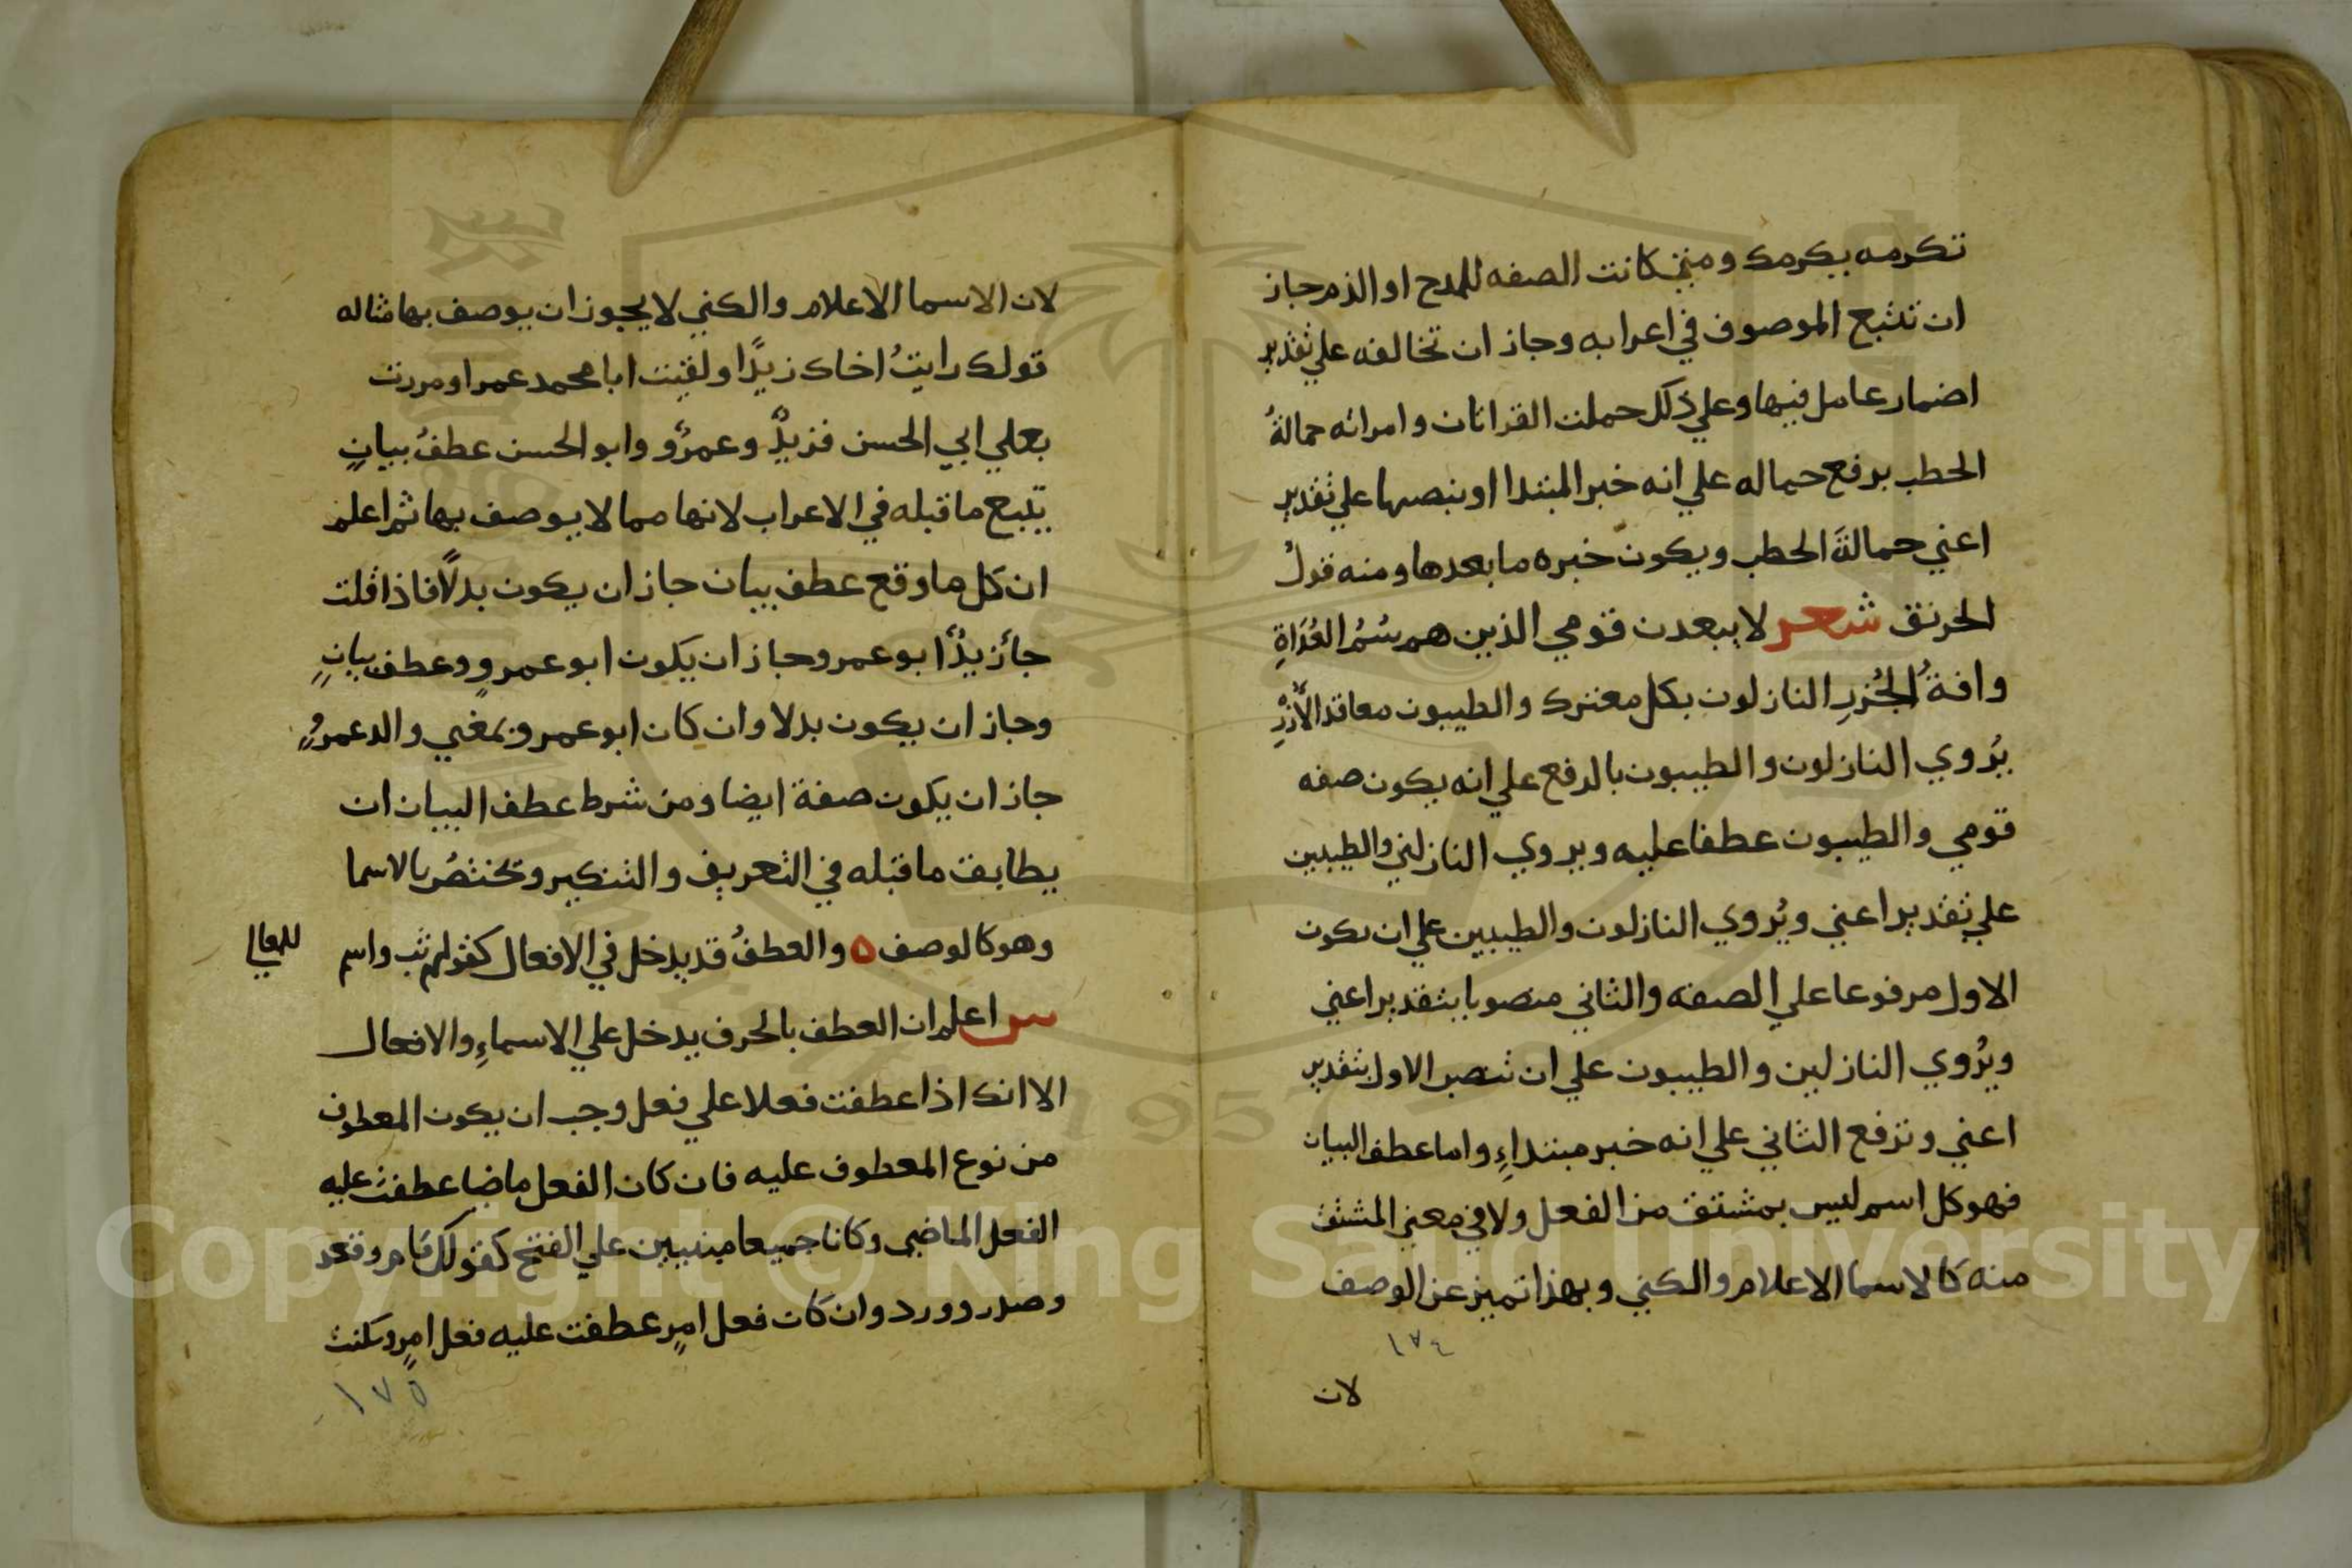 تكرمه يكرمك ومتي كانت الصفه للمدح او الذم جاز
ان تتبع الموصوف في اعرابه وجاز ان تخالفه علي تقدير
اضمار عامل فيها وعلي ذلك حملت القراتان وامراته حمالةُ
الحطب برفع حماله علي انه خبر المبتدا او بنصبها علي تقدير
اعني حمالةَ الحطب ويكون خبره ما بعدها ومنه قولُ
الخرنق شعر لا يبعدن قومي الذين هم سُمُ العُدَاةِ
وافةُ الجُزرِ النازلون بكل معترك والطيبون معاقد الأُزْرِ
يُروي النازلون والطيبون بالرفع علي انه يكون صفه
قومي والطيبون عطفا عليه ويروي النازلين والطيبين
علي تقدير اعني ويُروي النازلون والطيبين علي ان يكون
الاول مرفوعا علي الصفه والثاني منصوبا بتقدير اعني
ويُروي النازلين والطيبون علي ان تنصب الاول بتقدير
اعني وترفع الثاني علي انه خبر مبتداءٍ واما عطف البيان
فهو كل اسم ليس بمشتق من الفعل ولا في معني المشتق
منه كالاسما الاعلام والكني وبهذا تميز عن الوصف
١٧٤
لان
لان الاسما الاعلام والكني لا يجوز ان يوصف بها مثاله
قولك رايتُ اخاك زيدًا ولقيت ابا محمد عمرا ومررت
بعلي ابي الحسن فزيدٌ وعمرٌو وابو الحسن عطفُ بيانٍ
يتبع ما قبله في الاعراب لانها مما لا يوصف بها ثم اعلم
ان كل ما وقع عطف بيان جاز ان يكون بدلًا فاذا قلت
جا زيدٌ ابو عمر وجاز ان يكون ابو عمروٍ وعطف بيانٍ
وجاز ان يكون بدلا وان كان ابو عمرو بمعني والد عمروٍ
جاز ان يكون صفة ايضا ومن شرط عطف البيان ان
يطابق ما قبله في التعريف والتنكير وتختصُ بالاسما
وهو كالوصف ٥ والعطفُ قد يدخل في الافعال كقولهم ثب واسم للمعالي
س اعلم ان العطف بالحرف يدخل علي الاسماءِ والافعال
الا انك اذا عطفت فعلا علي فعل وجب ان يكون المعطوف
من نوع المعطوف عليه فان كان الفعل ماضا عطفت عليه
الفعل الماضي وكانا جميعا مبنيين علي الفتح كقولك قام وقعد
وصدر وورد وان كان فعل امرٍ عطفت عليه فعل امرٍ وسكنت
١٧٥
Copyright © King Saud University
1957